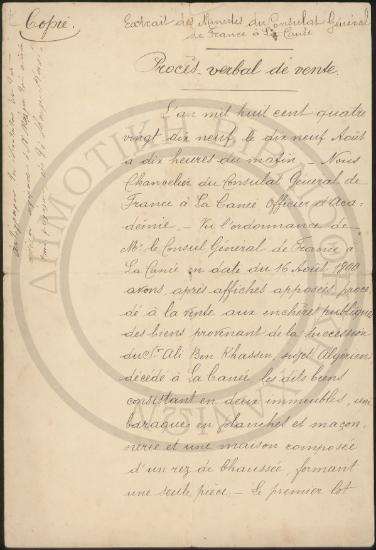 Copie.
Extrait des Minutes du Consulat Général
de France à La Canée
Procès verbal de vente.
L'an mil huit cent quatre
vingt dix neuf, le dix neuf Août
à dix heures du matin _ Nous
Chancelier du Consulat Général de
France à La Canée Officier d'Aca-
démie. _ Vu l'ordonnance de
Mr. le Consul Général de France à
La Canée en date du 16 Août 1899
avons, après affiches apposées procé
dé à la vente aux enchères publiques
des biens provenant de la succession
du Sr. Ali Ben Khassin, sujet Algérien
décédé à La Canée les dits biens
consistant en deux immeubles, une
baraque en planches et maçon-
nerie et une maison composée
d'un rez de chaussée, formant
une seule pièce. _ Le premier lot
ΔΗΜΟΤΙΚΗ ΒΙΒΛΙΟΘΗΚΗ ΧΑΝΙΩΝ